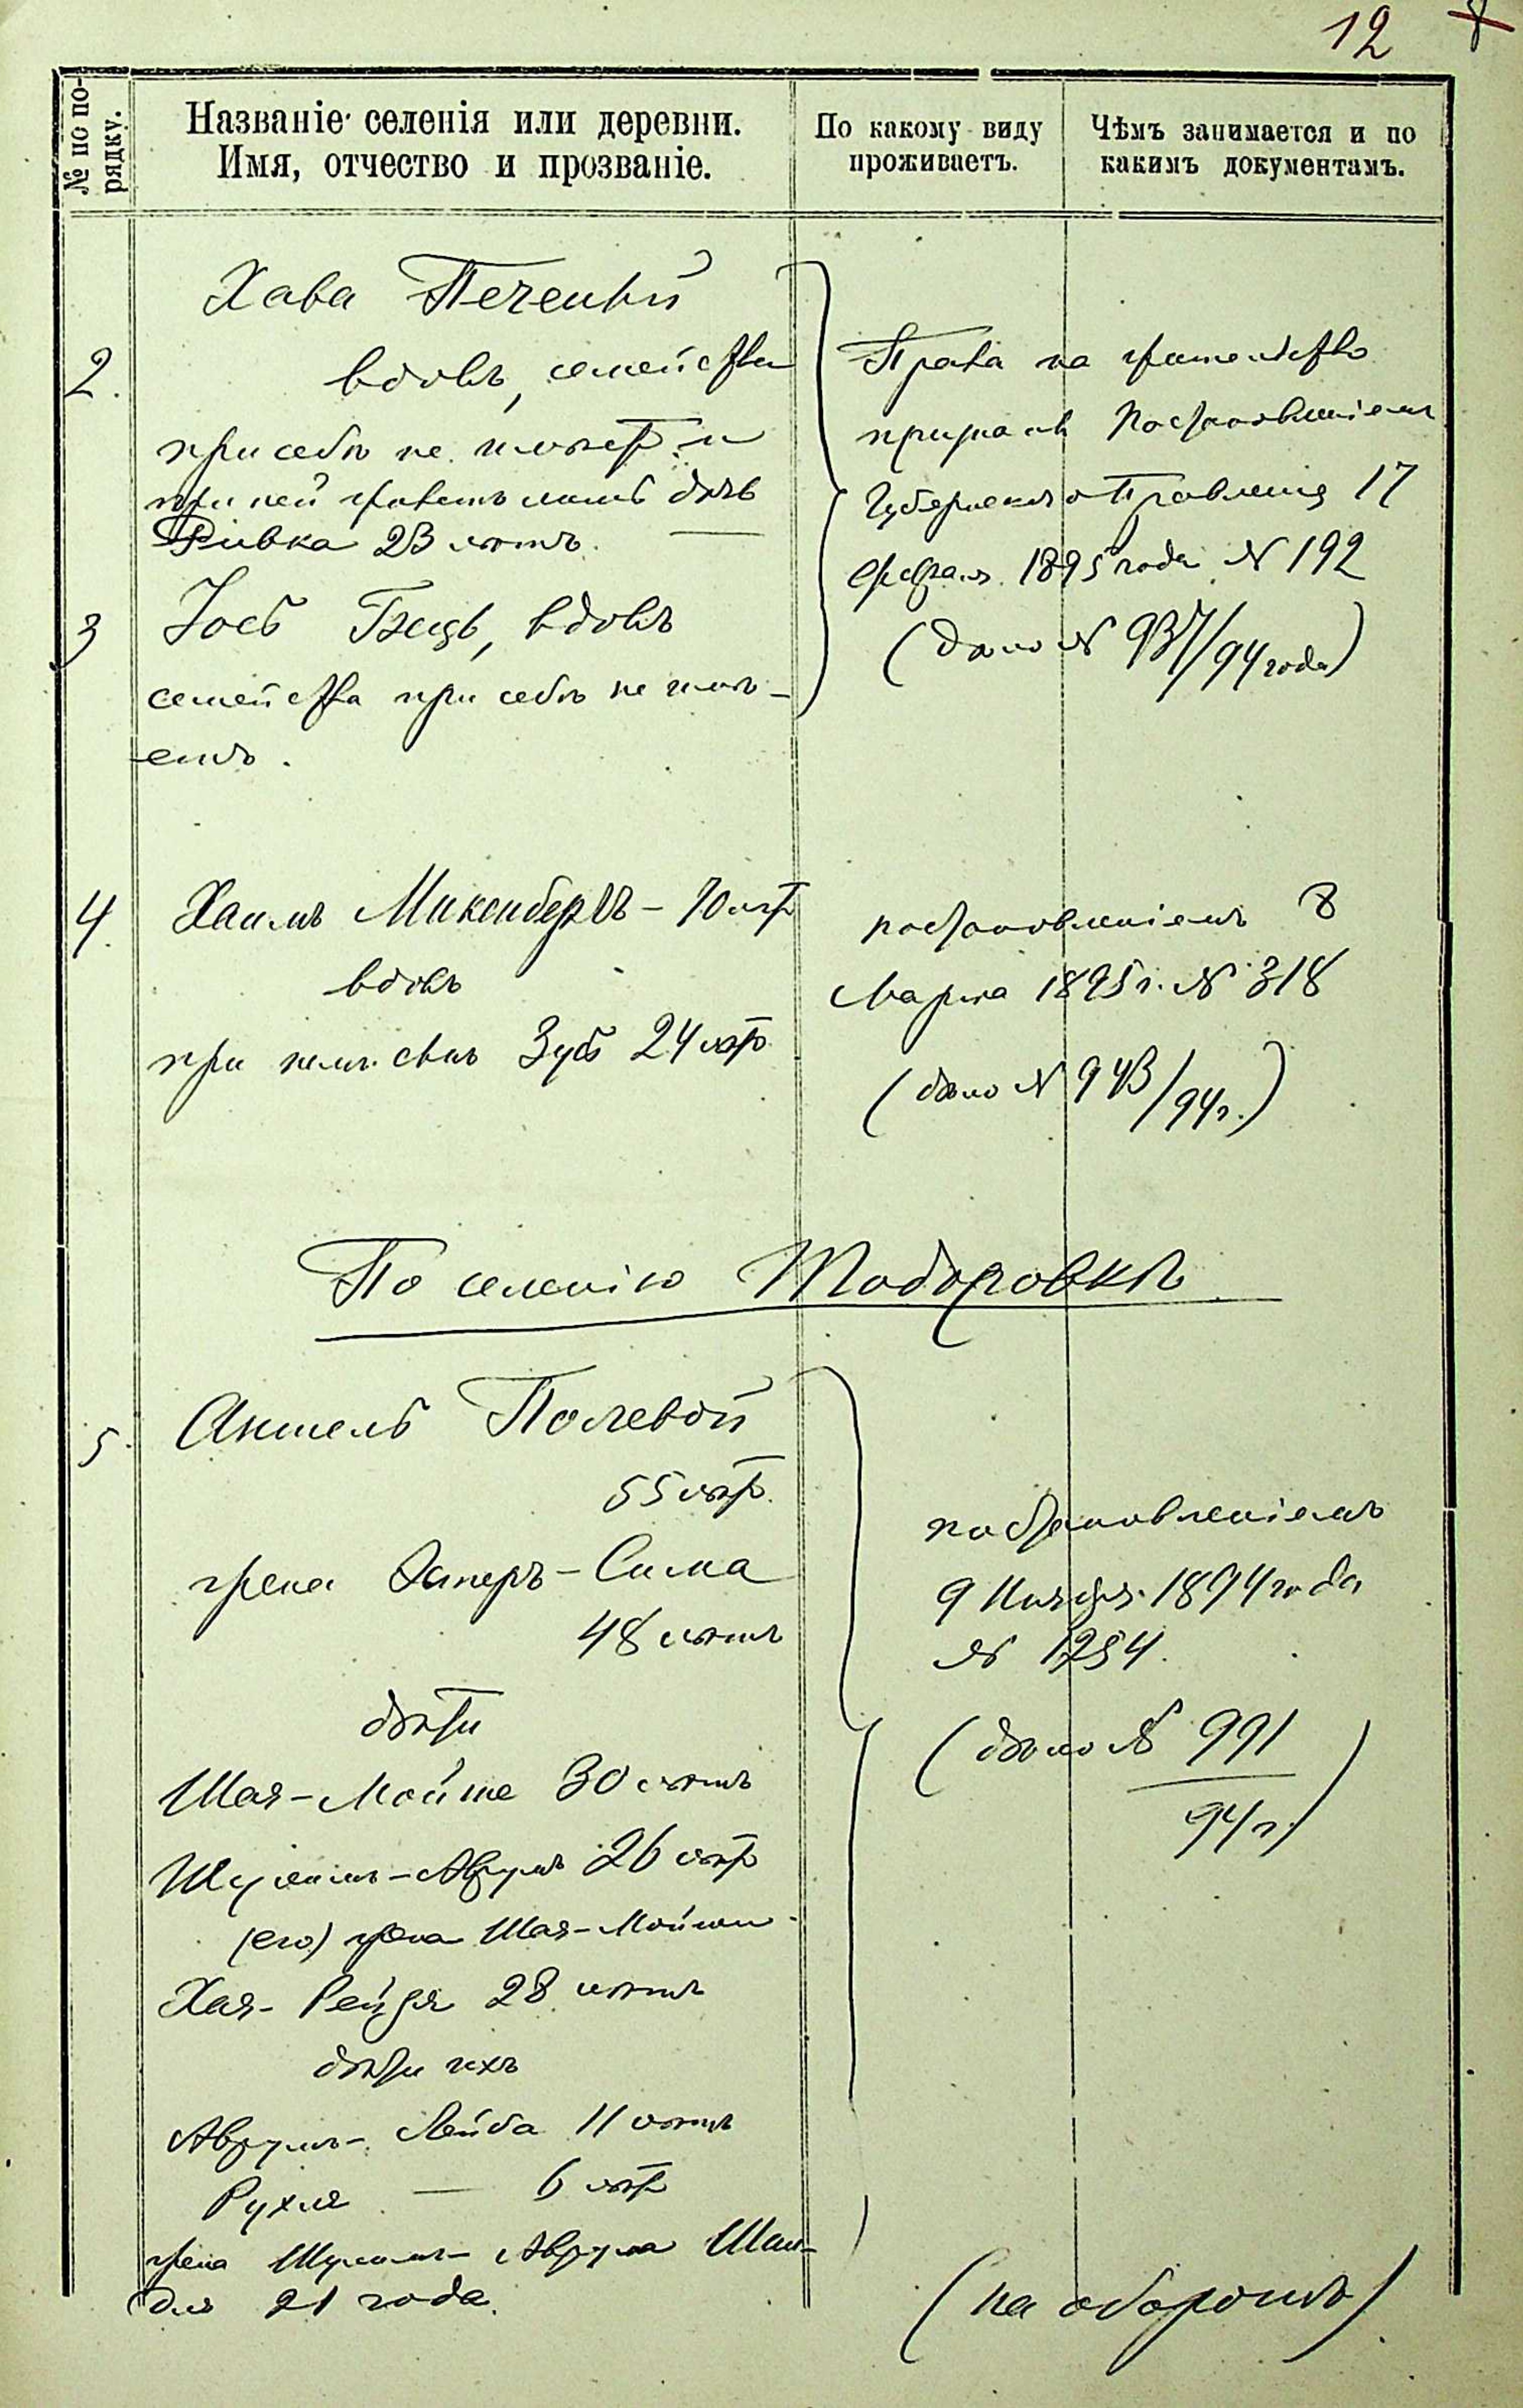 12
№ по по-
рядку.
Названіе селенія или деревни.
Имя, отчество и прозваніе.
По какому виду
проживаетъ.
Чѣмъ занимается и по
какимъ документамъ.
Хава Печений
2. вдова, семейства
при себѣ не имѣетъ и
при ней живетъ лишь дочь
Ривка 23 лѣтъ.
3 Іось вдовъ
семейства при себѣ не имѣ-
етъ.
Права на жительство
признаны Постановленіемъ
Губернскаго Правленія 17
февраля 1895 года № 192
(дѣло № 937/94 года)
4. Хаимъ Миксибергъ - 70 лѣтъ
вдовъ
при немъ сынъ Зусь 24 лѣтъ
постановленіемъ 8
Марта 1895 г. № 318
(дѣло № 943/94 г.)
По селенію Тодоровкѣ
5. Аншель Полевой
55 лѣтъ.
жена Эстеръ - Сима
48 лѣтъ
дѣти
Шая - Мойше 30 лѣтъ
Шулимъ - Аврумъ 26 лѣтъ
(его) жена Шая - Мойши
Хая - Рейзя 28 лѣтъ
дѣти ихъ
Аврумъ - Лейба 11 лѣтъ
Рухля — 6 лѣтъ
жена Шулимъ - Аврума Шин-
для 21 года.
постановленіемъ
9 Ноября 1894 года
№ 1254.
(дѣло № 991
94 г.)
(на оборотѣ)